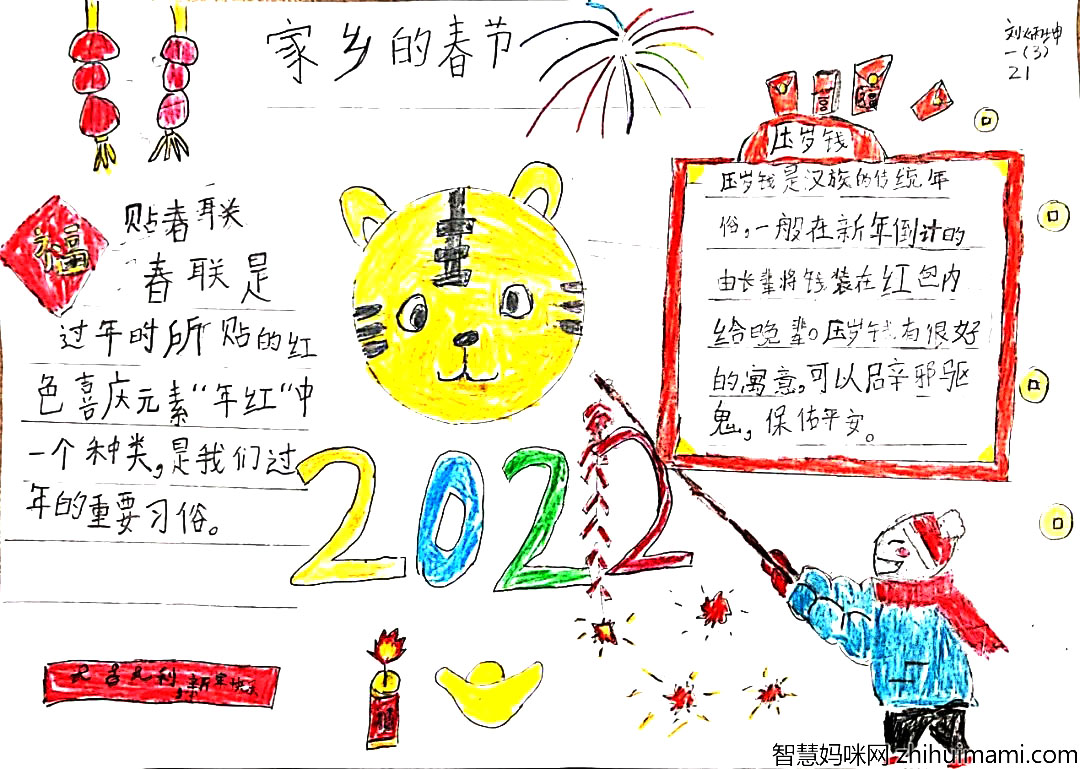 家乡的春节
一(3)
21
福
贴春联
春联是
过年时所贴的红
色喜庆元素“年红“中
一个种类,是我们过
年的重要习俗。
压岁钱
压岁钱是汉族的传统年
俗,一般在新年倒计的
由长辈将钱装在红包内
给晚辈。压岁钱有很好
的寓意,可以辟邪驱
鬼,保佑平安。
2022
新年快乐
智慧妈咪网 zhihuimami.com